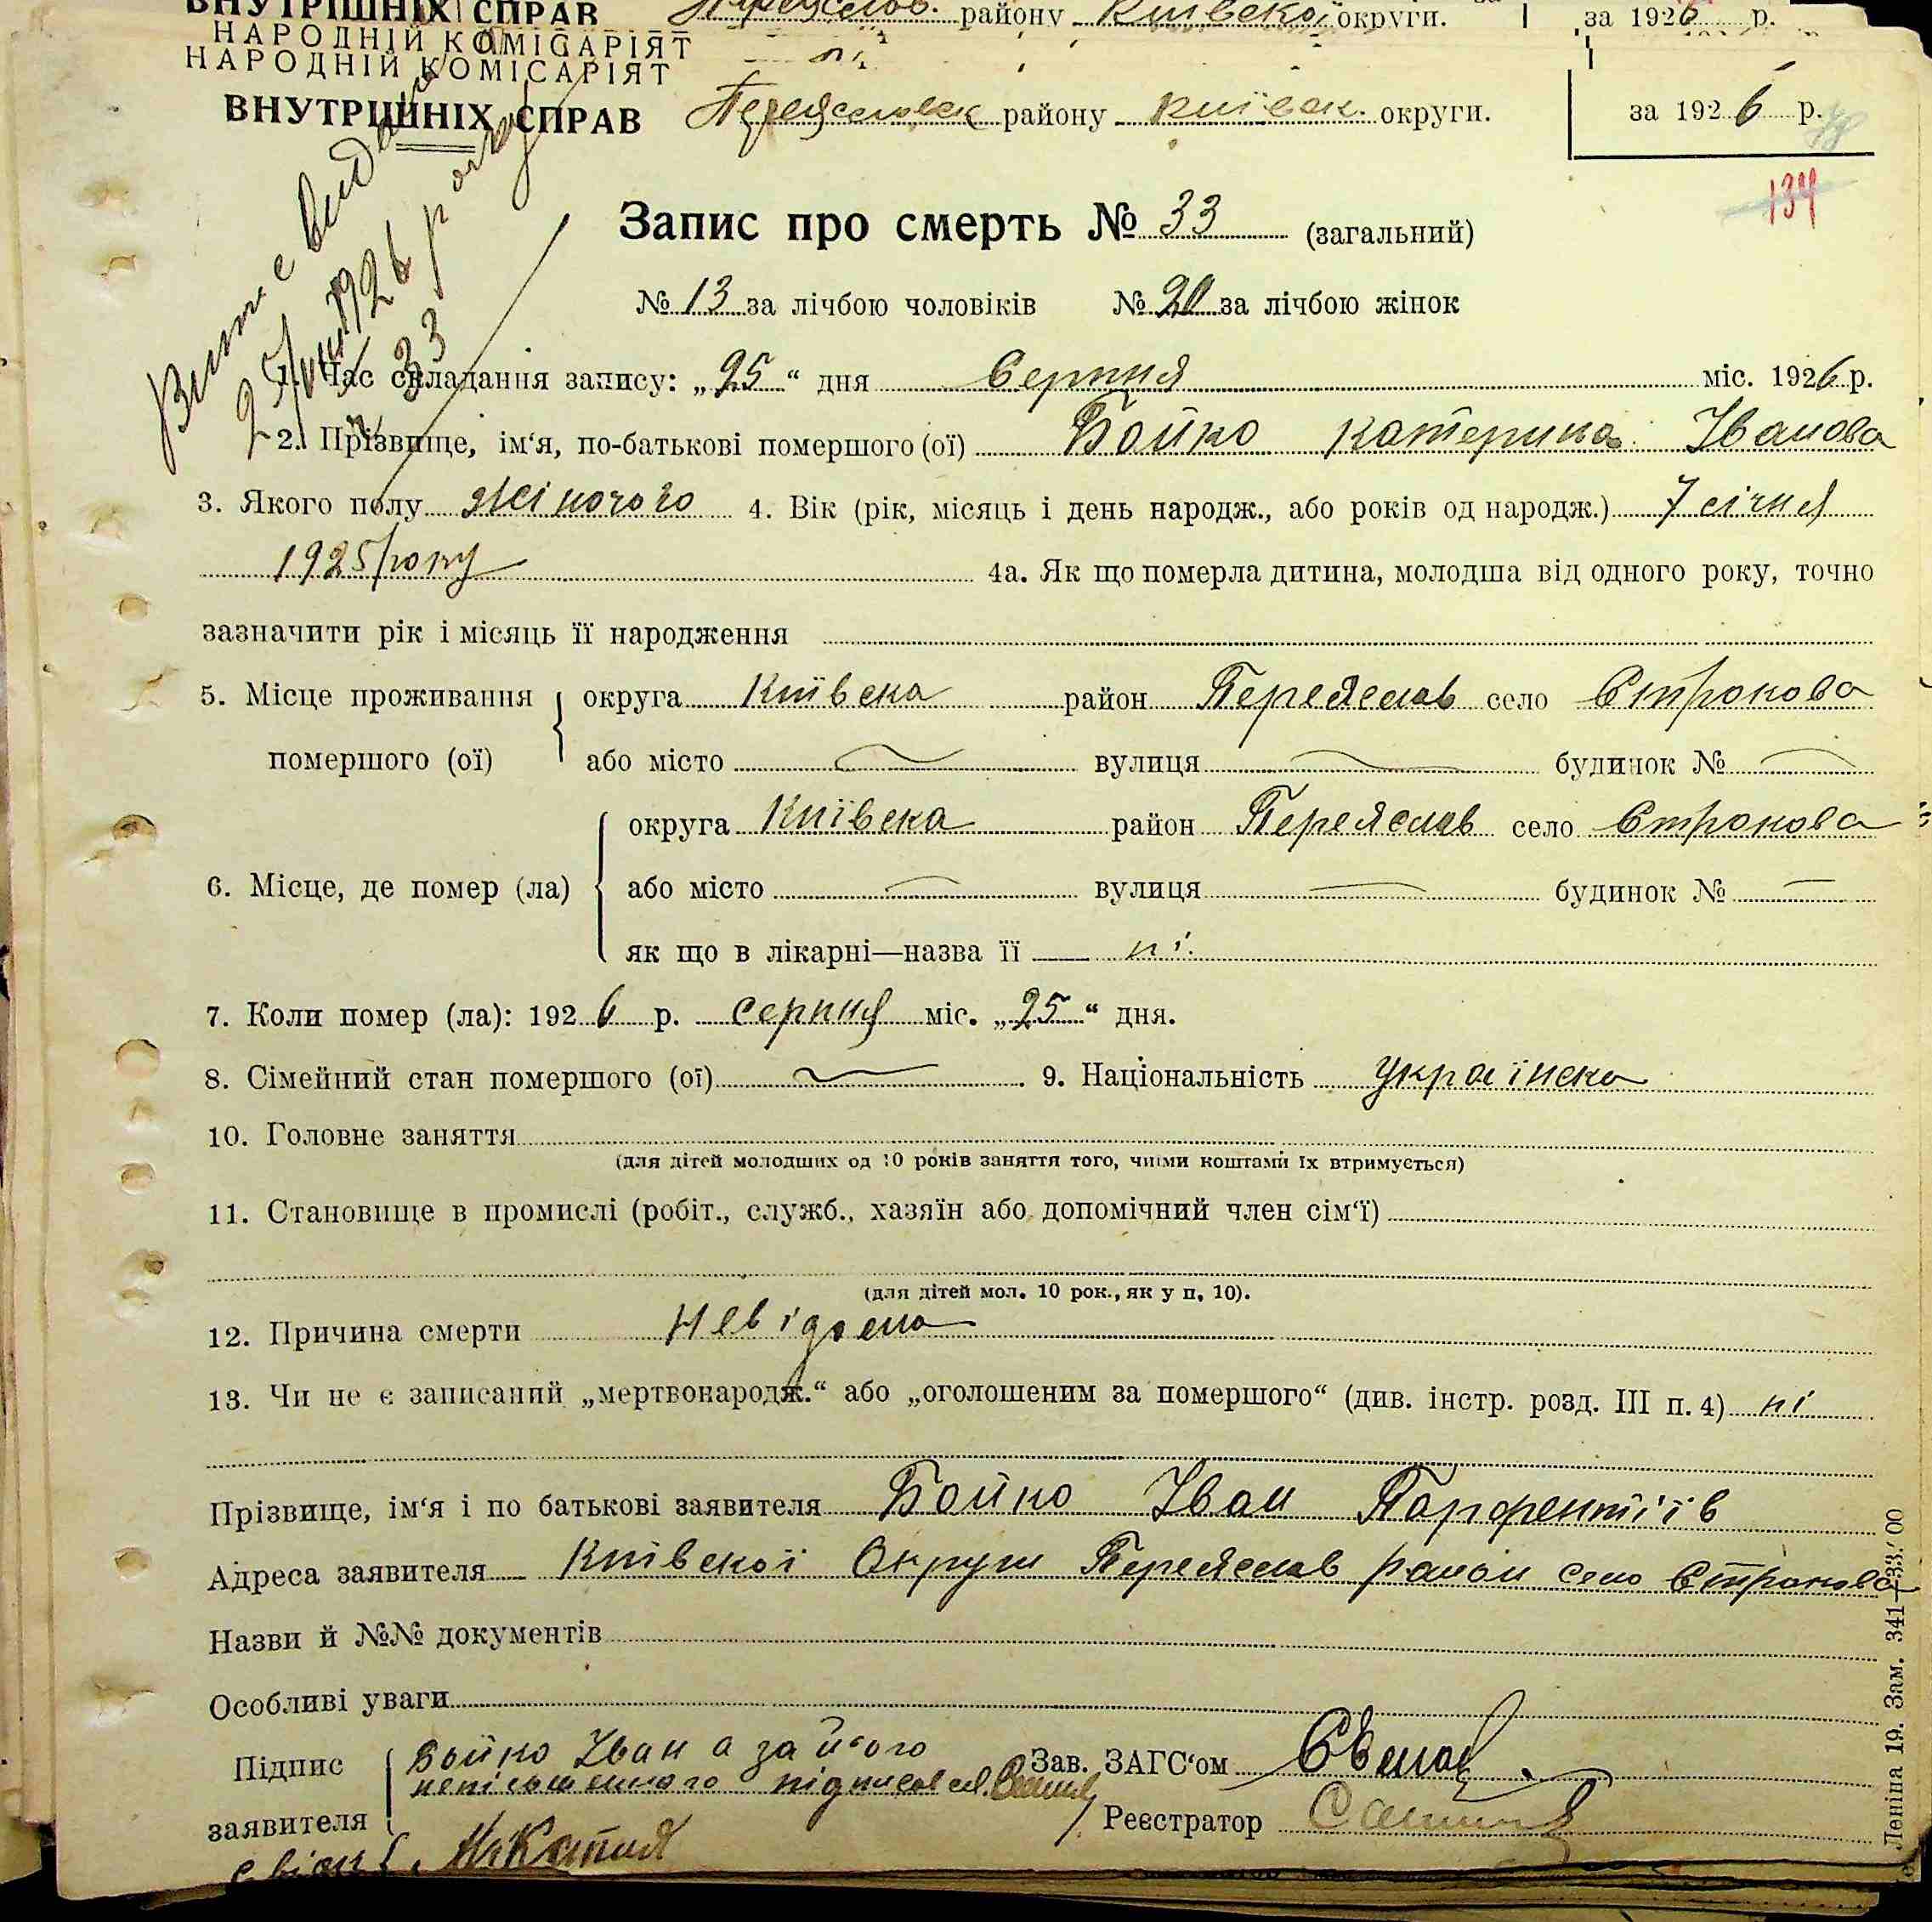 ВНУТРІШНІХ СПРАВ району Київської округи. за 1926 р.
НАРОДНІЙ КОМІСАРІЯТ
НАРОДНІЙ КОМІСАРІЯТ
ВНУТРІШНІХ СПРАВ Переяславск району київск. округи. за 1926 р.
134
Запис про смерть № 33 (загальний)
№ 13 за лічбою чоловіків № 20 за лічбою жінок
Витяг видано
25/VIII 1926 року
№ 33
1. Час складання запису: „25“ дня Серпня міс. 1926 р.
2. Прізвище, ім‘я, по-батькові помершого (ої) Бойко Катерина Іванова
3. Якого полу жіночого 4. Вік (рік, місяць і день народж., або років од народж.) 7 січня
1925 року 4а. Як що померла дитина, молодша від одного року, точно
зазначити рік і місяць її народження
5. Місце проживання округа Київска район Переяслав село Строкова
помершого (ої) або місто вулиця будинок №
округа Київска район Переяслав село Строкова
6. Місце, де помер (ла) або місто вулиця будинок №
як що в лікарні—назва її ні.
7. Коли помер (ла): 1926 р. серпня міс. „25“ дня.
8. Сімейний стан помершого (ої) 9. Національність українска
10. Головне заняття
(для дітей молодших од 10 років заняття того, чиїми коштами їх втримується)
11. Становище в промислі (робіт., служб., хазяїн або допомічний член сім‘ї)
(для дітей мол. 10 рок., як у п. 10).
12. Причина смерти Невідома
13. Чи не є записаний „мертвонародж.“ або „оголошеним за помершого“ (див. інстр. розд. III п. 4) ні
Прізвище, ім‘я і по батькові заявителя Бойко Іван Парфентіїв
Адреса заявителя Київскої Округи Переяслав район село Строкова
Назви й №№ документів
Особливі уваги
Підпис Бойко Іван а за його Зав. ЗАГС‘ом
неписьменного підписався
заявителя Реєстратор
Леніна 19. Зам. 341—33.